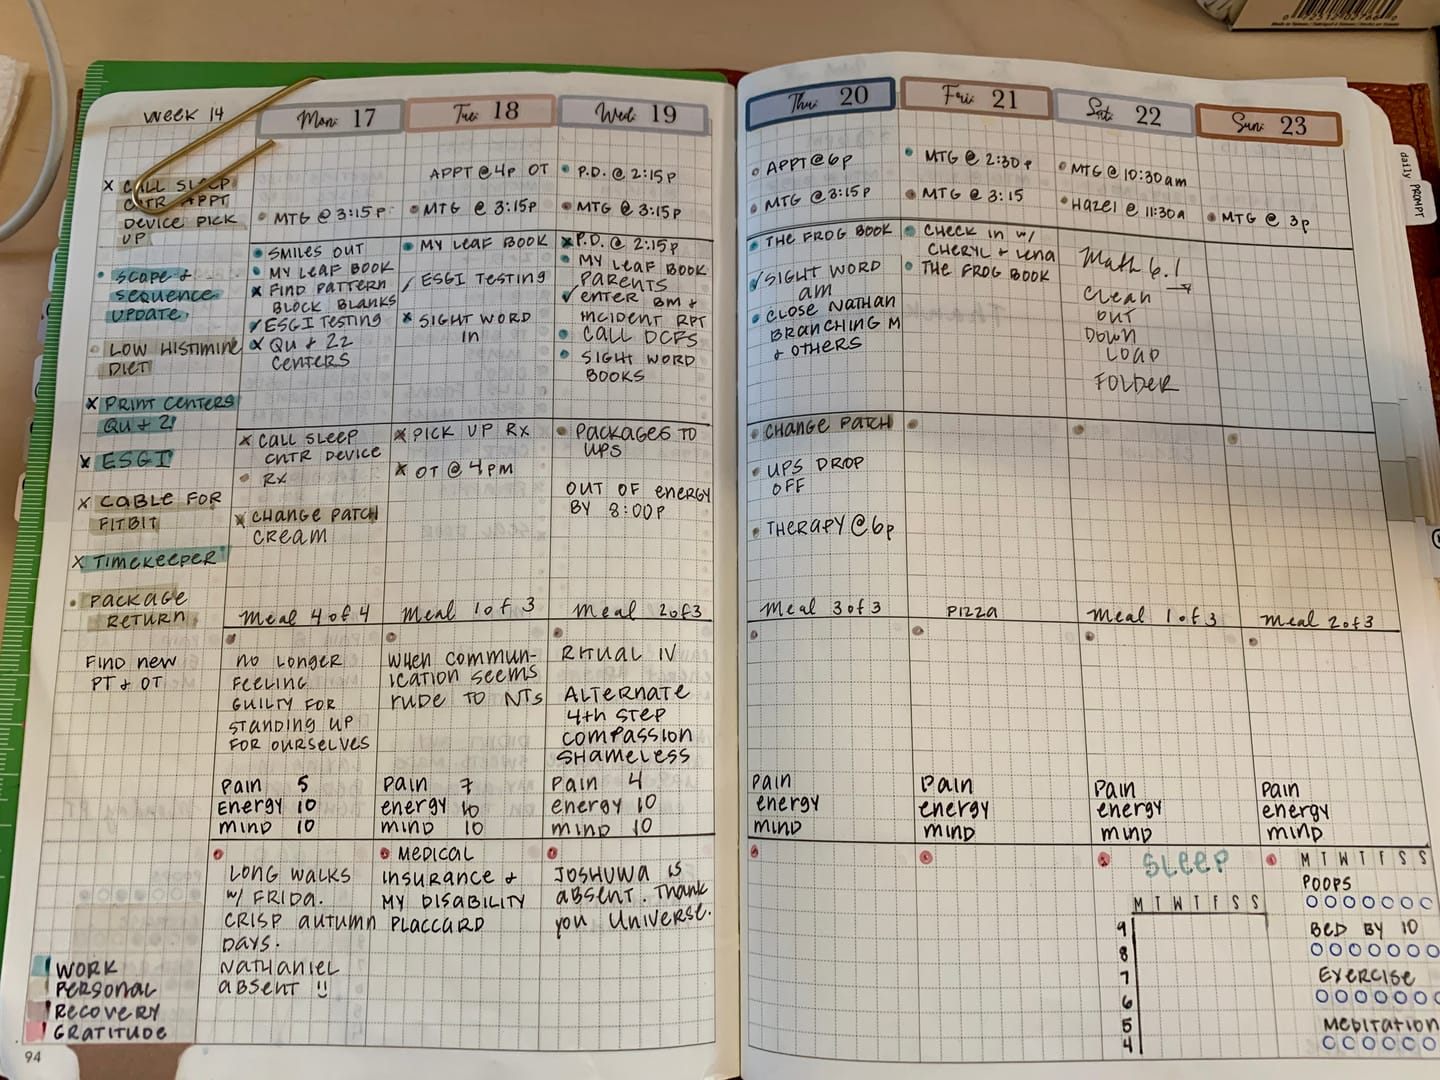 Week 14
Mon: 17
Tue: 18
Wed: 19
Thu: 20
Fri: 21
Sat: 22
Sun: 23
daily PROMPT
x CALL SLEEP
CNTR APPT
DEVICE PICK
UP
• SCOPE &
SEQUENCE
UPDATE.
• LOW HISTIMINE
DIET
x PRINT CENTERS
QU & 2!
x ESGI
x CABLE FOR
FITBIT
x TIMEKEEPER
• PACKAGE
RETURN
FIND NEW
PT & OT
WORK
PERSONAL
RECOVERY
GRATITUDE
94
• MTG @ 3:15P
• SMILES OUT
• MY LEAF BOOK
x FIND PATTERN
BLOCK BLANKS
/ESGI TESTING
x QU & 22
CENTERS
x CALL SLEEP
CNTR DEVICE
• RX
x CHANGE PATCH
CREAM
Meal 4 of 4
NO LONGER
FEELING
GUILTY FOR
STANDING UP
FOR OURSELVES
PAIN 5
ENERGY 10
MIND 10
LONG WALKS
W/ FRIDA.
CRISP AUTUMN
DAYS.
NATHANIEL
ABSENT !!
APPT @ 4P OT
• MTG @ 3:15P
• MY LEAF BOOK
/ ESGI TESTING
x SIGHT WORD
IN
x PICK UP RX
x OT @ 4PM
Meal 1 of 3
WHEN COMMUN-
ICATION SEEMS
RUDE TO NTS
PAIN 7
ENERGY 10
MIND 10
• MEDICAL
INSURANCE &
MY DISABILITY
PLACCARD
• P.D. @ 2:15P
• MTG @ 3:15P
x P.D. @ 2:15P
• MY LEAF BOOK
PARENTS
✓ ENTER BM &
INCIDENT RPT
• CALL DCFS
• SIGHT WORD
BOOKS
• PACKAGES TO
UPS
OUT OF ENERGY
BY 8:00P
Meal 2 of 3
RITUAL IV
ALTERNATE
4th STEP
COMPASSION
SHAMELESS
PAIN 4
ENERGY 10
MIND 10
JOSHUWA IS
ABSENT. THANK
YOU UNIVERSE.
• APPT @ 6P
• MTG @ 3:15P
• THE FROG BOOK
✓SIGHT WORD
AM
• CLOSE NATHAN
BRANCHING M
& OTHERS
• CHANGE PATCH
• UPS DROP
OFF
• THERAPY @ 6P
Meal 3 of 3
PAIN
ENERGY
MIND
• MTG @ 2:30P
• MTG @ 3:15
• CHECK IN W/
CHERYL & LENA
• THE FROG BOOK
PIZZA
PAIN
ENERGY
MIND
• MTG @ 10:30am
• HAZEL @ 11:30A
Math 6.1 →
CLEAN
OUT
DOWN
LOAD
FOLDER
Meal 1 of 3
PAIN
ENERGY
MIND
SLEEP
M T W T F S S
9
8
7
6
5
4
• MTG @ 3P
Meal 2 of 3
PAIN
ENERGY
MIND
M T W T F S S
POOPS
BED BY 10
EXERCISE
MEDITATION